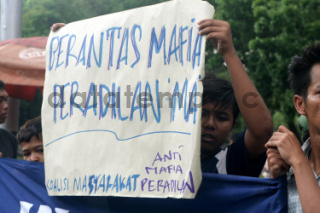 BERANTAS MAFIA
PERADILAN !
KOALISI MASYARAKAT ANTI
MAFIA
PERADILAN
datatempo.co